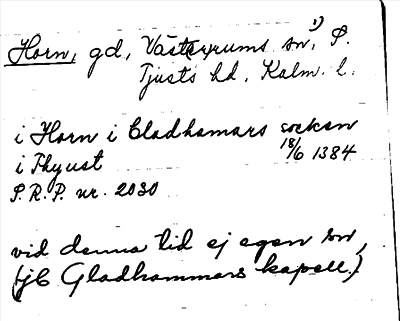 Horn, gd, Västerums sn,¹⁾ S.
Tjusts hd, Kalm. l.
i Horn i Cladhamars socken
i Thyust 18/6 1384
S.R.P. nr. 2030
vid denna tid ej egen sn,
(jfr Gladhammars kapell.)